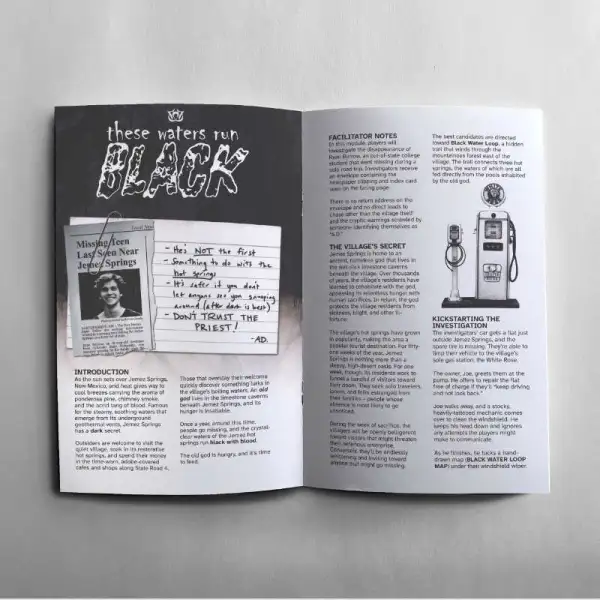 these waters run
BLACK
Local News
Missing Teen
Last Seen Near
Jemez Springs
- He's NOT the first
- Something to do with the
hot springs
- It's safer if you don't
let anyone see you snooping
around (after dark is best)
- DON'T TRUST THE
PRIEST!
-AD.
INTRODUCTION
As the sun sets over Jemez Springs,
New Mexico, arid heat gives way to
cool breezes carrying the aroma of
ponderosa pine, chimney smoke,
and the acrid tang of blood. Famous
for the steamy, soothing waters that
emerge from its underground
geothermal vents, Jemez Springs
has a dark secret.
Outsiders are welcome to visit the
quiet village, soak in its restorative
hot springs, and spend their money
in the time-worn, adobe-covered
cafes and shops along State Road 4.
Those that overstay their welcome
quickly discover something lurks in
the village's boiling waters. An old
god lies in the limestone caverns
beneath Jemez Springs, and its
hunger is insatiable.
Once a year, around this time,
people go missing, and the crystal-
clear waters of the Jemez hot
springs run black with blood.
The old god is hungry, and it's time
to feed.
FACILITATOR NOTES
In this module, players will
investigate the disappearance of
Ryan Barrow, an out-of-state college
student that went missing during a
solo road trip. Investigators receive
an envelope containing the
newspaper clipping and index card
seen on the facing page.
There is no return address on the
envelope and no direct leads to
chase other than the village itself
and the cryptic warnings scrawled by
someone identifying themselves as
THE VILLAGE'S SECRET
Jemez Springs is home to an
ancient, nameless god that lives in
the dark limestone caverns
beneath the village. Over thousands
of years, the village's residents have
learned to cohabitate with the god,
appeasing its relentless hunger with
human sacrifices. In return, the god
protects the village residents from
sickness, blight, and other ill-
fortune.
The village's hot springs have grown
in popularity, making this area a
popular tourist destination. For fifty-
one weeks of the year, Jemez
Springs is nothing more than a
sleepy, high-desert oasis. For one
week, though, its residents work to
ensnare a handful of visitors toward
their doom. They seek solo travelers,
loners, and folks estranged from
their families - people whose
absence is most likely to go
unnoticed.
During the week of sacrifice, the
villagers will be openly belligerent
toward visitors that might threaten
their nefarious enterprise.
Conversely, they'll be endlessly
welcoming and inviting toward
anyone that might go missing.
The best candidates are directed
toward Black Water Loop, a hidden
trail that winds through the
mountainous forest east of the
village. The trail connects three hot
springs, the waters of which are all
fed directly from the pools inhabited
by the old god.
KICKSTARTING THE
INVESTIGATION
The investigators' car gets a flat just
outside Jemez Springs, and the
spare tire is missing. They're able to
limp their vehicle to the village's
sole gas station, the White Rose.
The owner, Joe, greets them at the
pump. He offers to repair the flat
free of charge if they'll "keep driving
and not look back."
Joe walks away, and a stocky,
heavily-tattooed mechanic comes
over to clean the windshield. He
keeps his head down and ignores
any attempts the players might
make to communicate.
As he finishes, he tucks a hand-
drawn map (BLACK WATER LOOP
MAP) under their windshield wiper.